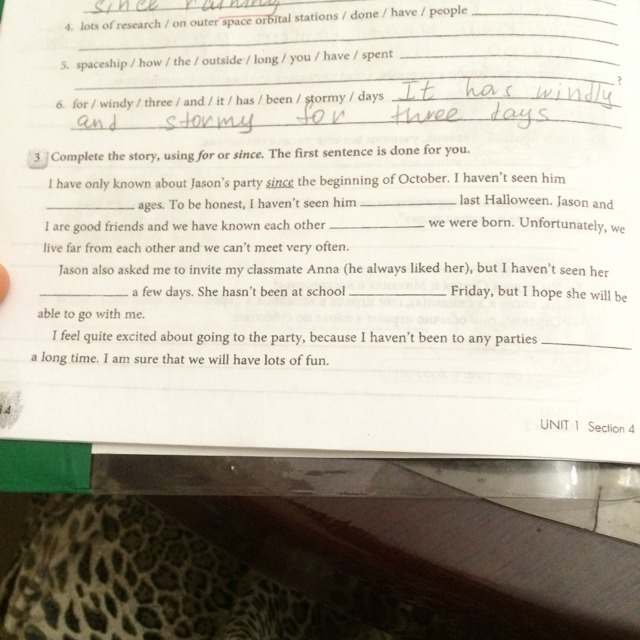 since raining
4. lots of research / on outer space orbital stations / done / have / people
5. spaceship / how / the / outside / long / you / have / spent
?
6. for / windy / three / and / it / has / been / stormy / days It has windly
and stormy for three days
3 Complete the story, using for or since. The first sentence is done for you.
I have only known about Jason's party since the beginning of October. I haven't seen him
ages. To be honest, I haven't seen him last Halloween. Jason and
I are good friends and we have known each other we were born. Unfortunately, we
live far from each other and we can't meet very often.
Jason also asked me to invite my classmate Anna (he always liked her), but I haven't seen her
a few days. She hasn't been at school Friday, but I hope she will be
able to go with me.
I feel quite excited about going to the party, because I haven't been to any parties
a long time. I am sure that we will have lots of fun.
14
UNIT 1 Section 4